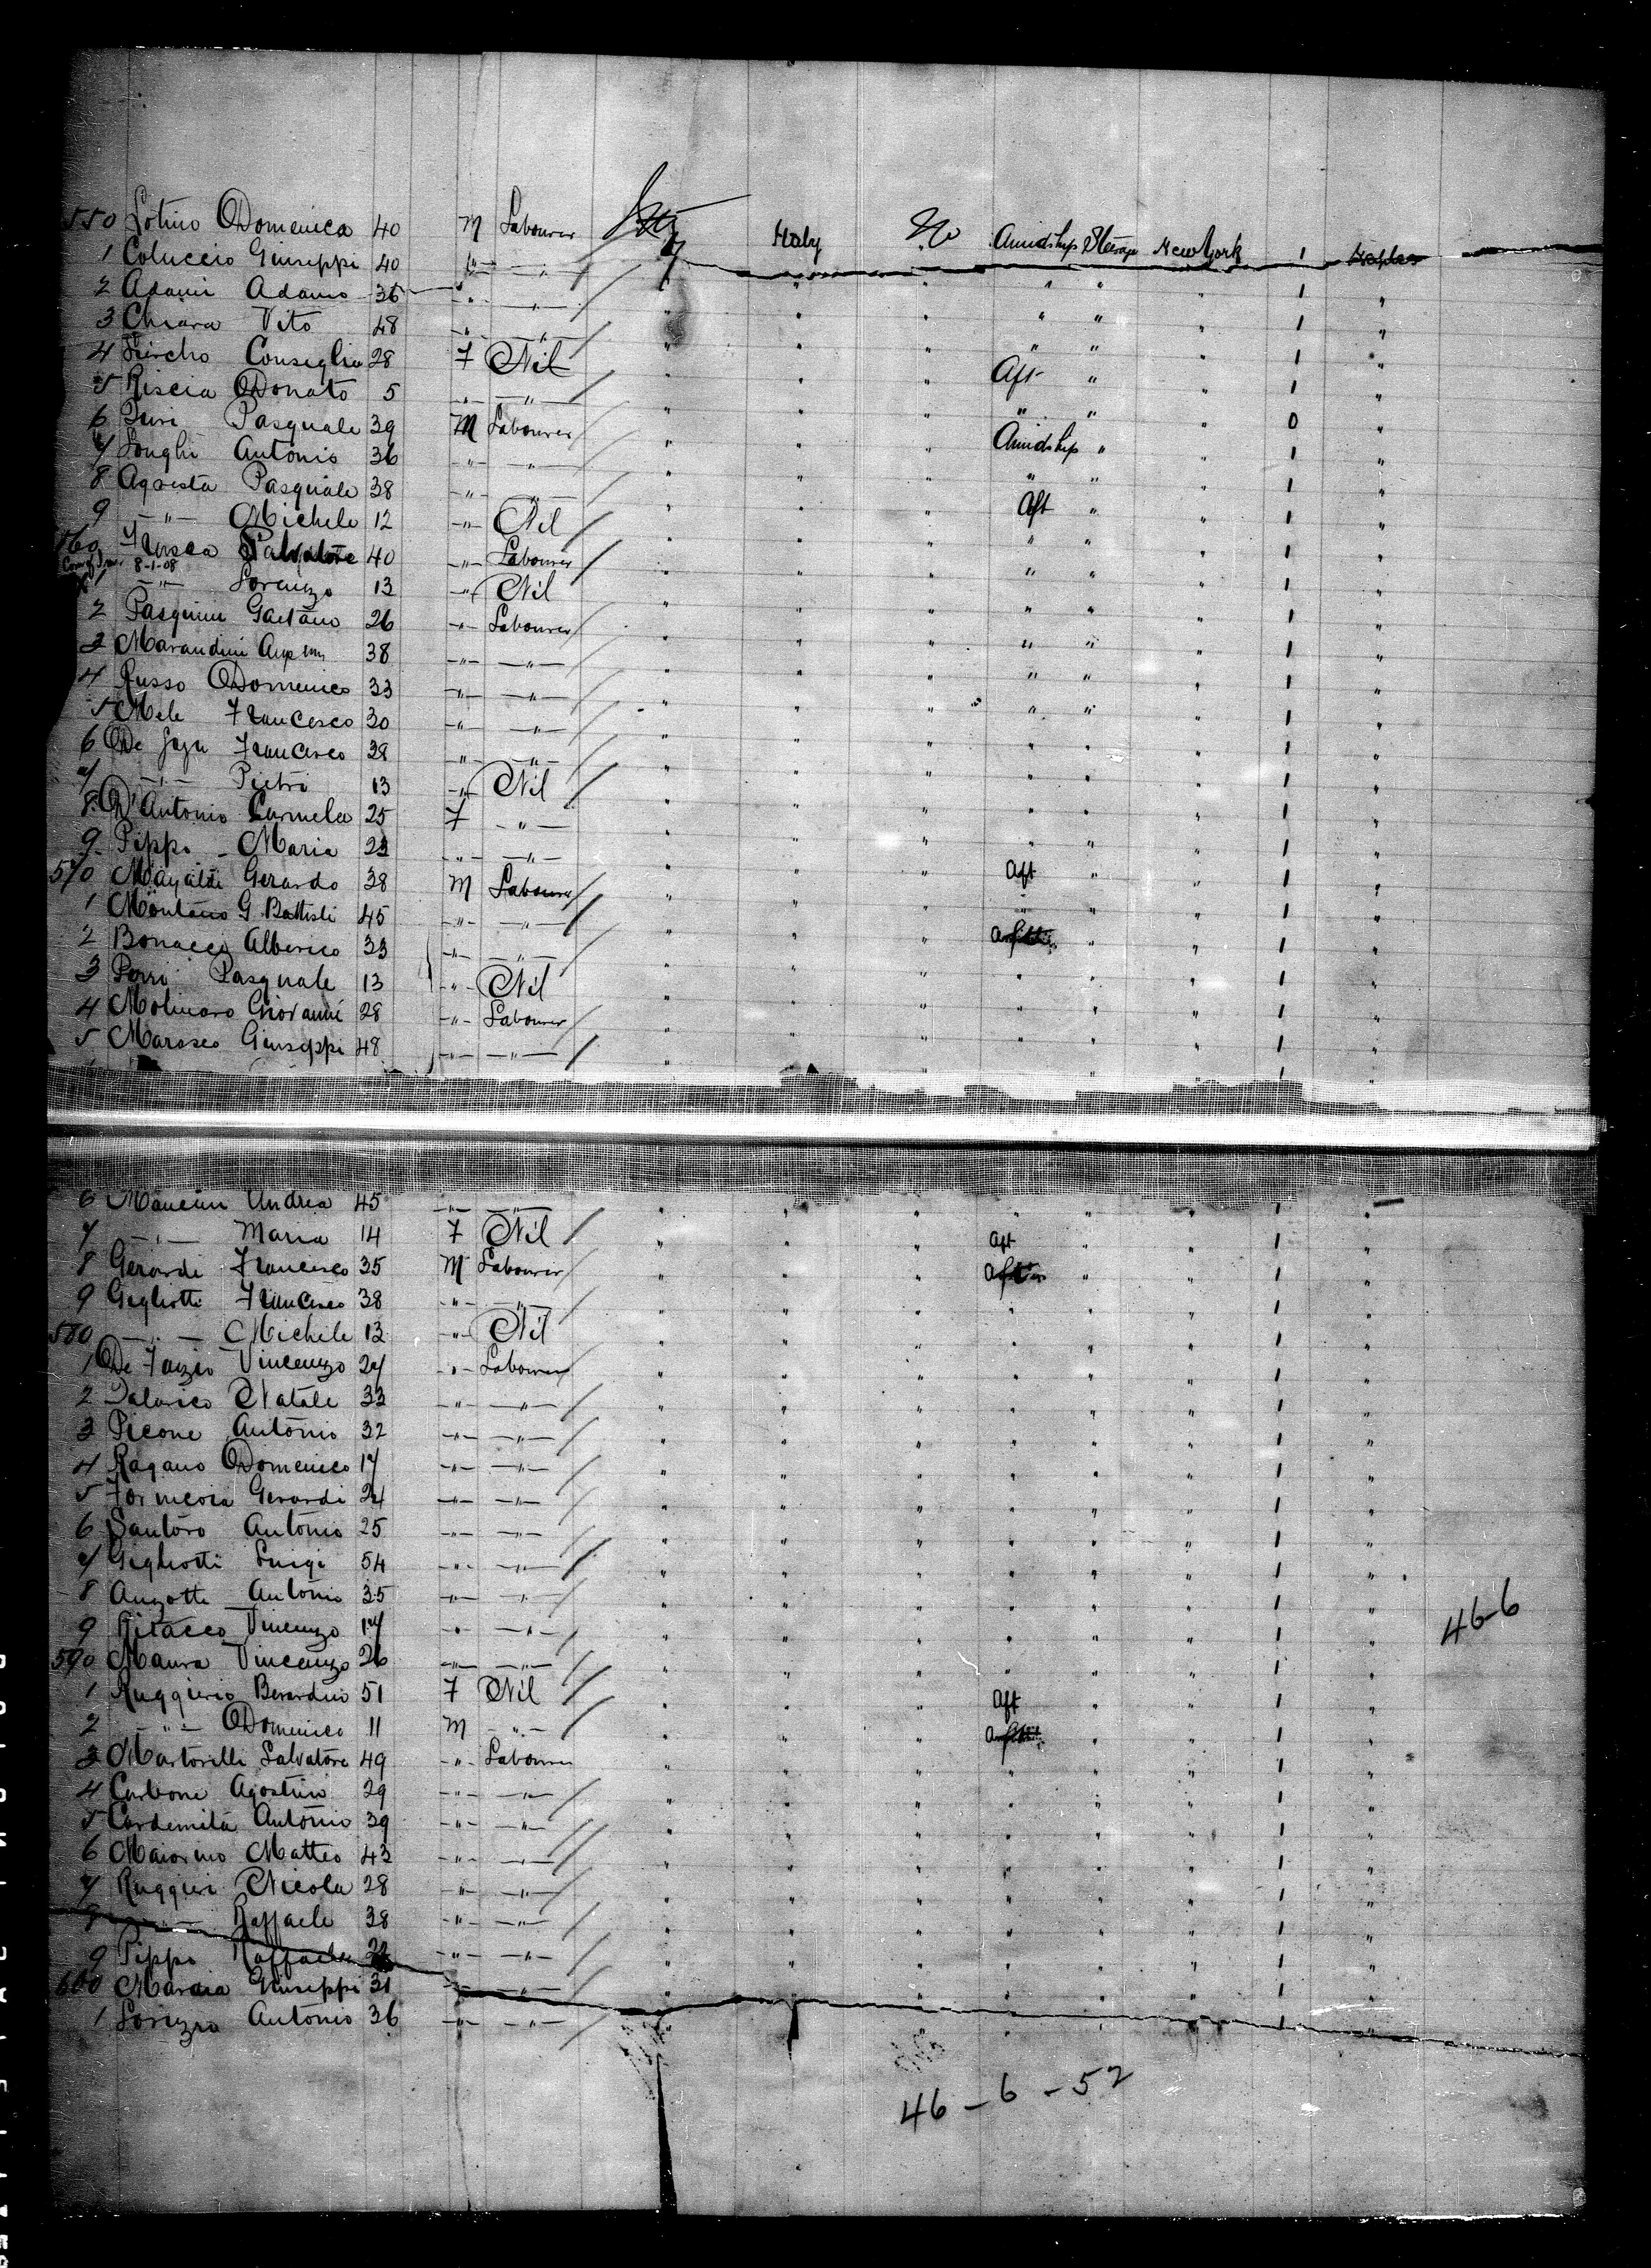 550 Lotino Domenica 40 M Labourer Italy Italy No Amidship Steerage New York 1 Naples
1 Coluccio Giuseppi 40 " " " " " " " " 1 "
2 Adami Adamo 36 " " " " " " " " 1 "
3 Chiara Vito 48 " " " " " " " " 1 "
4 Consiglia 28 F Nil " " " Aft " " 1 "
5 Riscia Donato 5 " " " " " " " " 0 "
6 Pasquale 39 M Labourer " " " Amidship " " 1 "
7 Longhi Antonio 36 " " " " " " " " 1 "
8 Agresta Pasquale 38 " " " " " Aft " " 1 "
9 " Michele 12 " Nil " " " " " " 1 "
560 Fusca Salvatore 40 " Labourer " " " " " " 1 "
8-1-08
1 " Lorenzo 13 " Nil " " " " " " 1 "
2 Pasquini Gaetano 26 " Labourer " " " " " " 1 "
3 Marandini 38 " " " " " " " " 1 "
4 Russo Domenico 33 " " " " " " " " 1 "
5 Mele Francesco 30 " " " " " " " " 1 "
6 De Francesco 38 " " " " " " " " 1 "
7 " Pietri 13 " Nil " " " " " " 1 "
8 D'Antonio Carmela 25 F " " " " " " " 1 "
9 Pippo Maria 23 " " " " " " " " 1 "
570 Gerardo 38 M Labourer " " " Aft " " 1 "
1 Montano G. Battisti 45 " " " " " " " " 1 "
2 Bonacci Alberico 33 " " " " " " " 1 "
3 Porri Pasquale 13 " Nil " " " " " " 1 "
4 Molinaro Giovanni 28 " Labourer " " " " " " 1 "
5 Marasco Giuseppi 48 " " " " " " " " 1 "
6 Mancini Andrea 45 " " " " " " " " 1 "
7 " Maria 14 F Nil " " " Aft " " 1 "
8 Gerardi Francesco 35 M Labourer " " " " " 1 "
9 Gigliotti Francesco 38 " " " " " " " " 1 "
580 " Michele 13 " Nil " " " " " " 1 "
1 De Fazio Vincenzo 27 " Labourer " " " " " " 1 "
2 Talarico Natale 33 " " " " " " " " 1 "
3 Picone Antonio 32 " " " " " " " " 1 "
4 Ragano Domenico 17 " " " " " " " " 1 "
5 Gerardi 24 " " " " " " " " 1 "
6 Santoro Antonio 25 " " " " " " " " 1 "
7 Gigliotti Luigi 54 " " " " " " " " 1 "
8 Anzotti Antonio 35 " " " " " " " " 1 "
9 Ritacco Vincenzo 17 " " " " " " " " 1 " 46-6
590 Maura Vincenzo 26 " " " " " " " " 1 "
1 Ruggierio Berardino 51 F Nil " " " Aft " " 1 "
2 " Domenico 11 M " " " " " " 1 "
3 Martorelli Salvatore 49 " Labourer " " " " " " 1 "
4 Carbone Agostino 29 " " " " " " " " 1 "
5 Cardemita Antonio 39 " " " " " " " " 1 "
6 Maiorino Matteo 43 " " " " " " " " 1 "
7 Ruggieri Nicola 28 " " " " " " " " 1 "
8 " Raffaele 38 " " " " " " " " 1 "
9 Pippo Raffaela " " " " " " " " 1 "
600 Maraia Giuseppi 31 " " " " " " " " 1 "
1 Antonio 36 " " " " " " " " 1 "
46-6-52